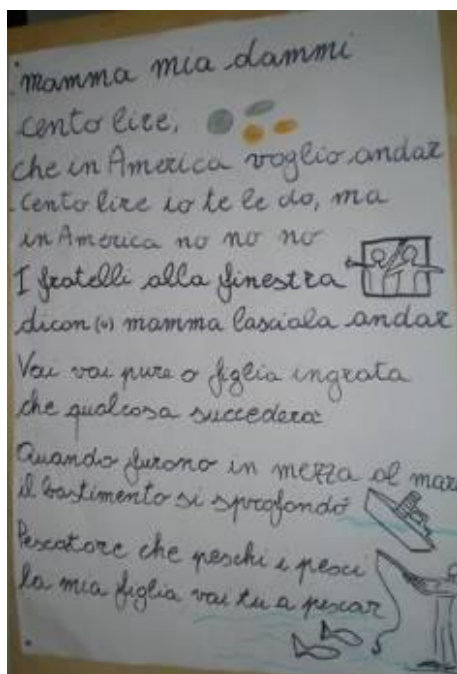 mamma mia dammi
cento lire,
che in America voglio andar
Cento lire io te le do, ma
in America no no no
I fratelli alla finestra
dicon(o) mamma lasciala andar
Vai vai pure o figlia ingrata
che qualcosa succederà
Quando furono in mezza al mare
il bastimento si sprofondò
Pescatore che peschi i pesci
la mia figlia vai tu a pescar